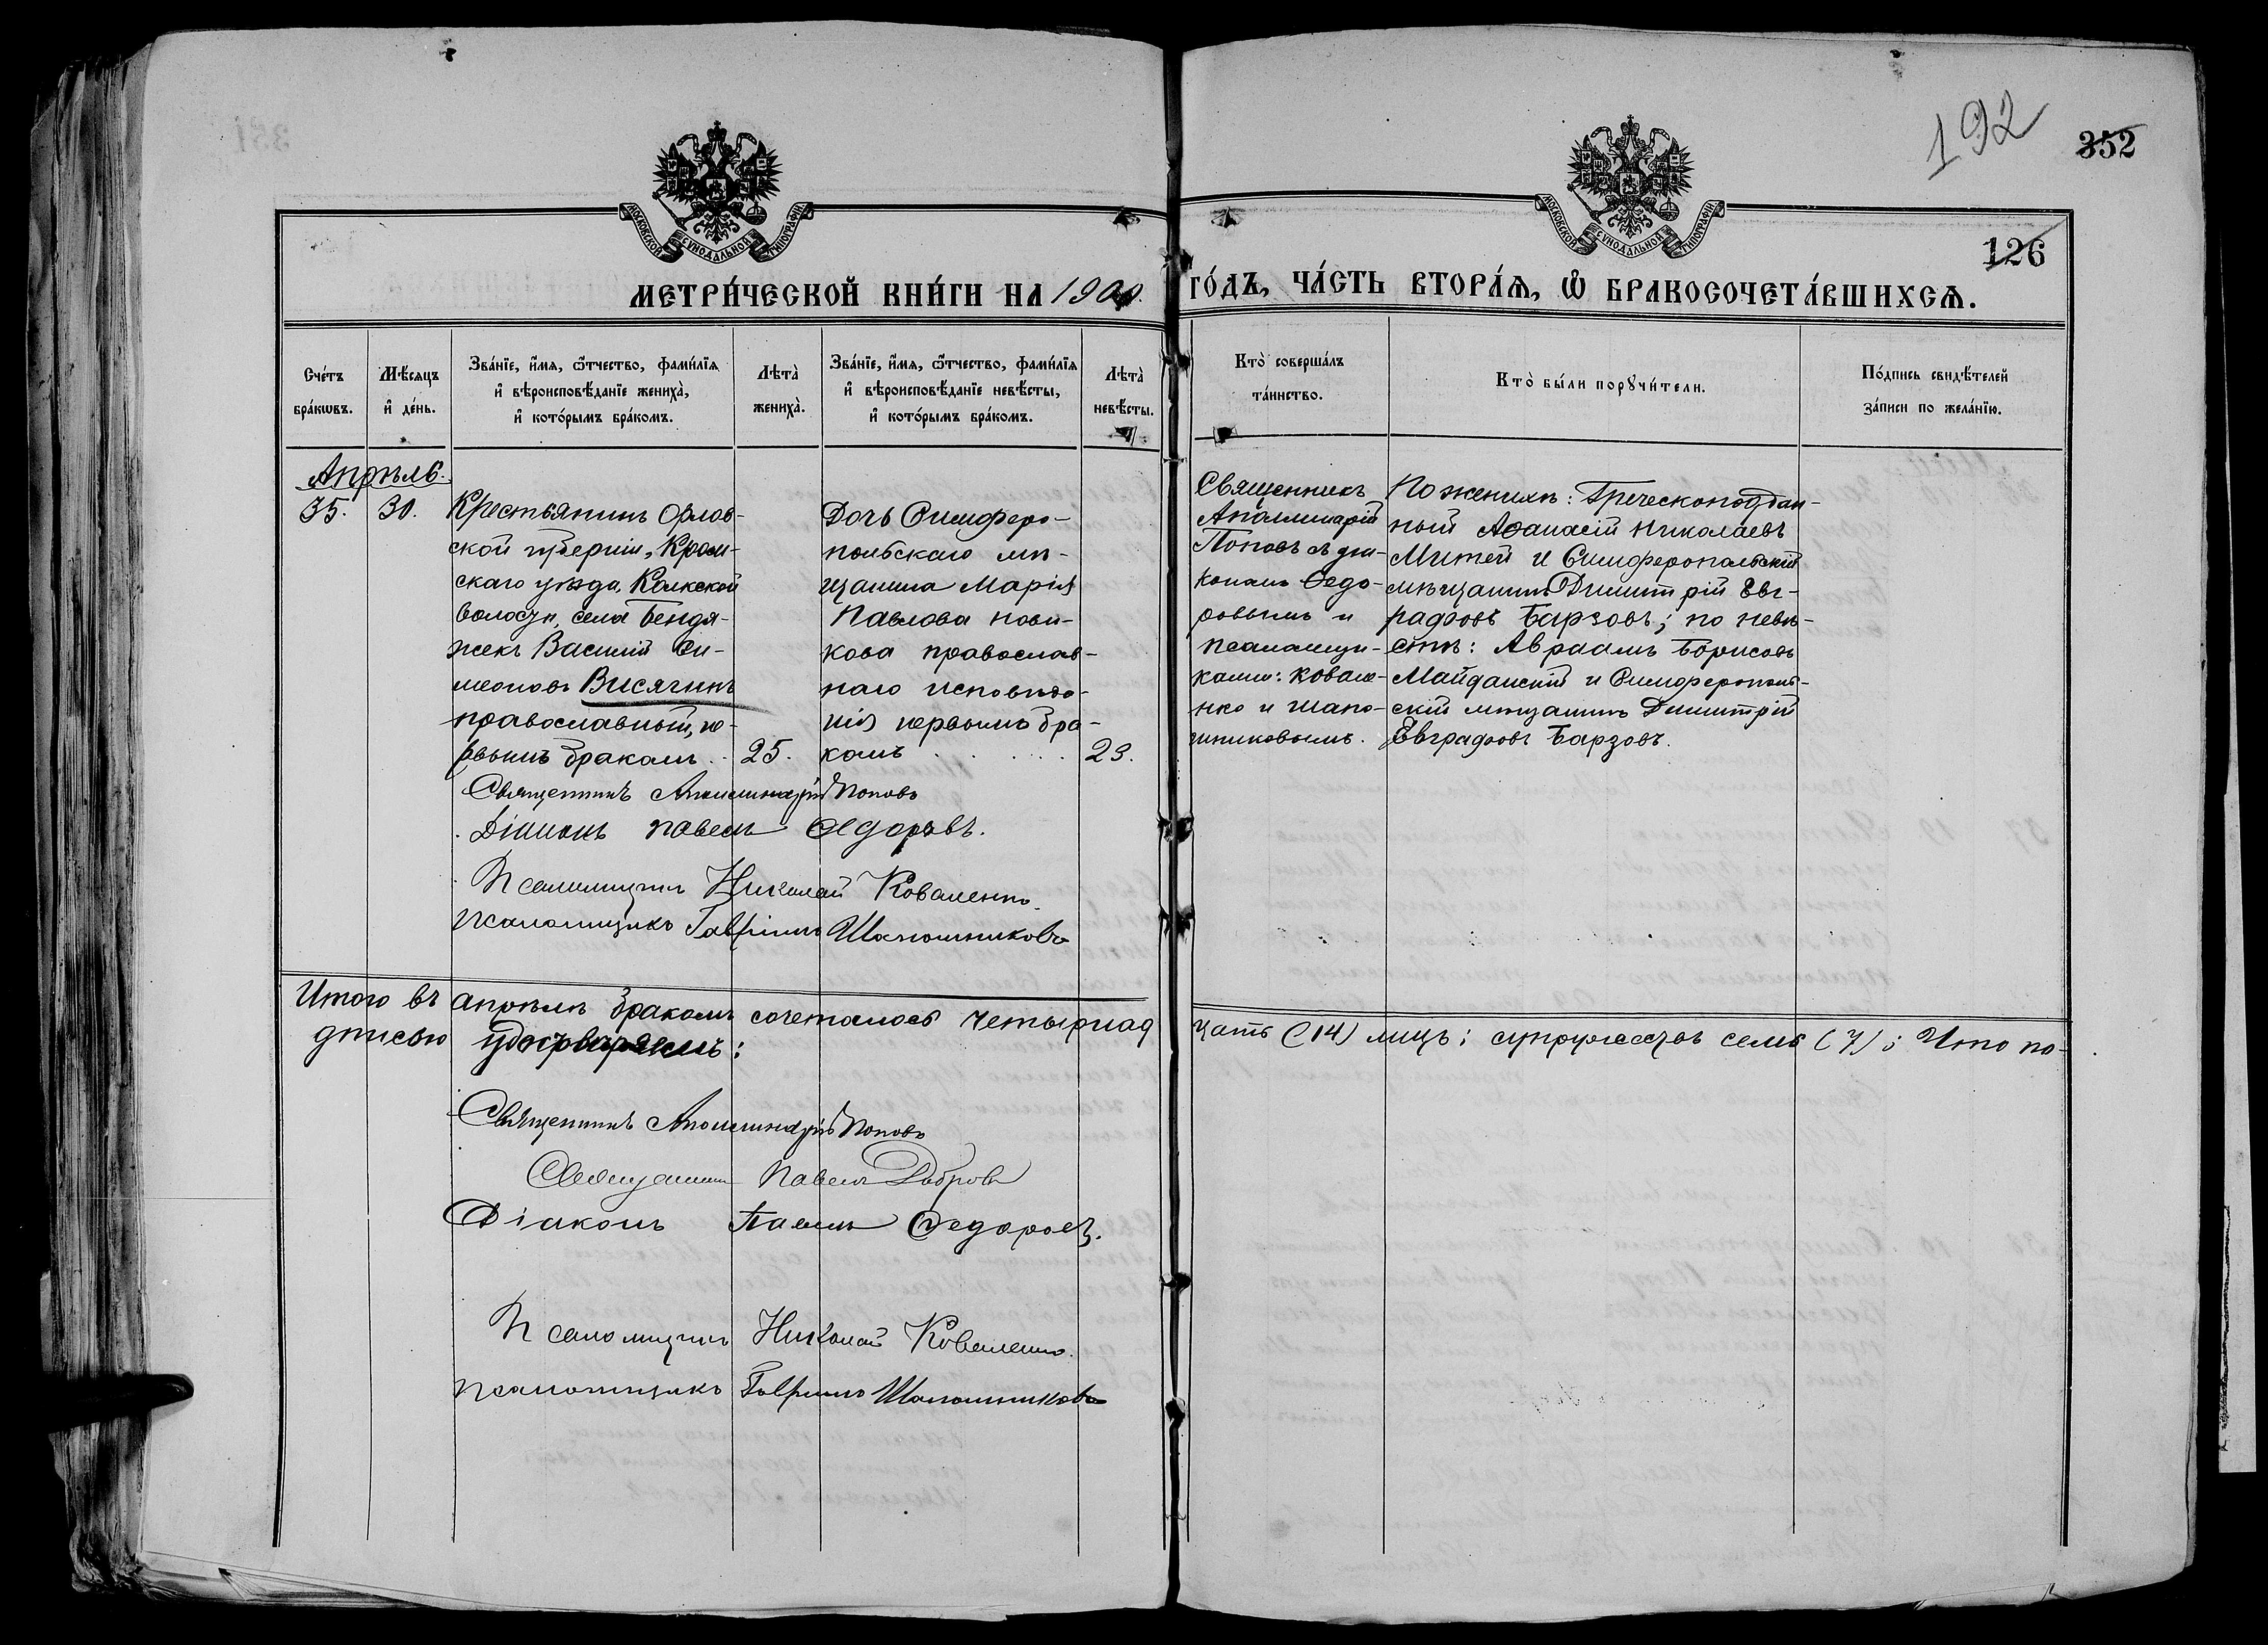 192
352
126
МОСКОВСКОЙ СѴНОДАЛЬНОЙ ТИПОГРАФІИ
МОСКОВСКОЙ СѴНОДАЛЬНОЙ ТИПОГРАФІИ
МЕТРИ́ЧЕСКОЙ КНИ́ГИ НА 1900 ГО́ДЪ, ЧА́СТЬ ВТОРА́Ѧ, Ѡ҆ БРАКОСОЧЕТА́ВШИХСѦ.
Сче́тъ бра́кѡвъ.
Мѣ́сяцъ и҆ де́нь.
Зва́нїе, и҆́мя, ѻ҆́тчество, фами́лїя и҆ вѣроисповѣ́данїе жениха̀, и҆ кото́рымъ бра́комъ.
Лѣта̀ жениха̀.
Зва́нїе, и҆́мя, ѻ҆́тчество, фами́лїя и҆ вѣроисповѣ́данїе невѣ́сты, и҆ кото́рымъ бра́комъ.
Лѣта̀ невѣ́сты.
Кто̀ соверша́лъ та́инство.
Кто̀ бы́ли порꙋчи́тели.
По́дпись свидѣ́телей за́писи по жела́нїю.
Апрѣль.
35.
30.
Крестьянинъ Орлов-
ской губерніи, Кром-
скаго уѣзда,
волости, села Бендя-
жекъ Василій Си-
меоновъ Висягинъ
православный, пе-
рвымъ бракомъ.
25.
Дочь Симферо-
польскаго мѣ-
щанина Марія
Павлова Нови-
кова православ-
наго исповѣда-
нія первымъ бра-
комъ
23.
Священникъ
Аполлинарій
Поповъ съ діа-
кономъ Ѳедо-
ровымъ и
псаломщи-
ками: Ковале-
нко и Шапо-
шниковымъ.
По женихѣ: Греческоподдан-
ный Аѳанасій Николаевъ
Митей и Симферопольскій
мѣщанинъ Димитрій Евг-
рафовъ Барзовъ; по невѣ-
стѣ: Авраамъ Борисовъ
Майданскій и Симферополь-
скій мѣщанинъ Димитрій
Евграфовъ Барзовъ.
Священникъ Аполлинарій Поповъ
Діаконъ Павелъ Ѳедоровъ.
Псаломщикъ Николай Коваленко.
Псаломщикъ Гавріилъ Шапошниковъ
Итого въ апрѣлѣ бракомъ сочеталось четырнад
цать (14) лицъ; супружествъ семь (7); Что по-
дписью удостовѣряемъ:
Священникъ Аполлинарій Поповъ
Священникъ Павелъ Добровъ
Діаконъ Павелъ Ѳедоровъ.
Псаломщикъ Николай Коваленко.
Псаломщикъ Гавріилъ Шапошниковъ